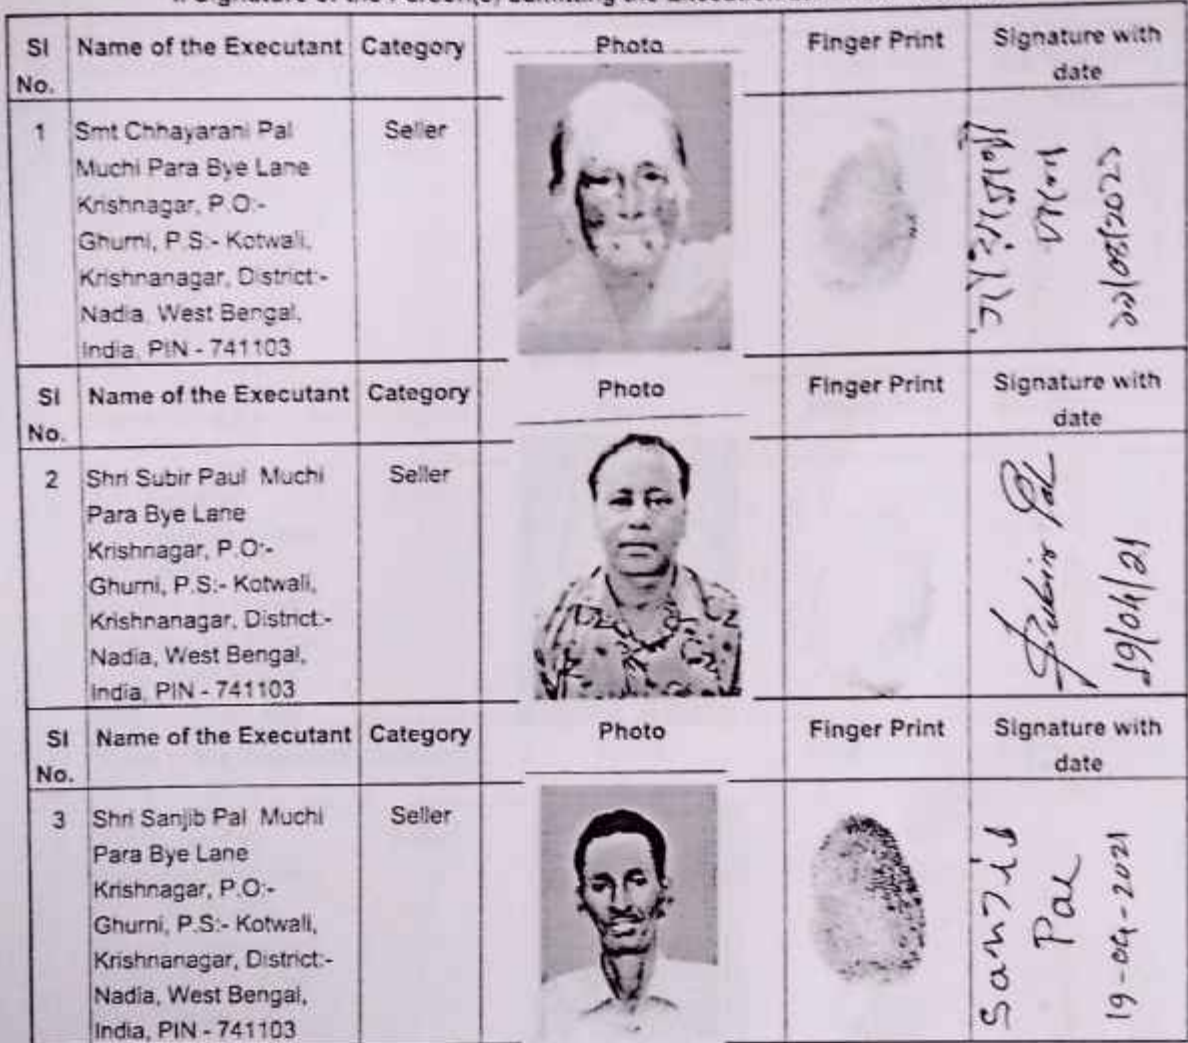 Signature of the Person(s) admitting the Execution
Sl No. Name of the Executant Category Photo Finger Print Signature with date
1 Smt Chhayarani Pal Seller
Muchi Para Bye Lane
Krishnagar, P.O:-
Ghurni, P.S:- Kotwali,
Krishnanagar, District:-
Nadia, West Bengal,
India, PIN - 741103
ছায়ারানী
পাল
Sl No. Name of the Executant Category Photo Finger Print Signature with date
2 Shri Subir Paul Muchi Seller
Para Bye Lane
Krishnagar, P.O:-
Ghurni, P.S:- Kotwali,
Krishnanagar, District:-
Nadia, West Bengal,
India, PIN - 741103
Subir Pal
19/04/21
Sl No. Name of the Executant Category Photo Finger Print Signature with date
3 Shri Sanjib Pal Muchi Seller
Para Bye Lane
Krishnagar, P.O:-
Ghurni, P.S:- Kotwali,
Krishnanagar, District:-
Nadia, West Bengal,
India, PIN - 741103
Sanjib
Pal
19-04-2021